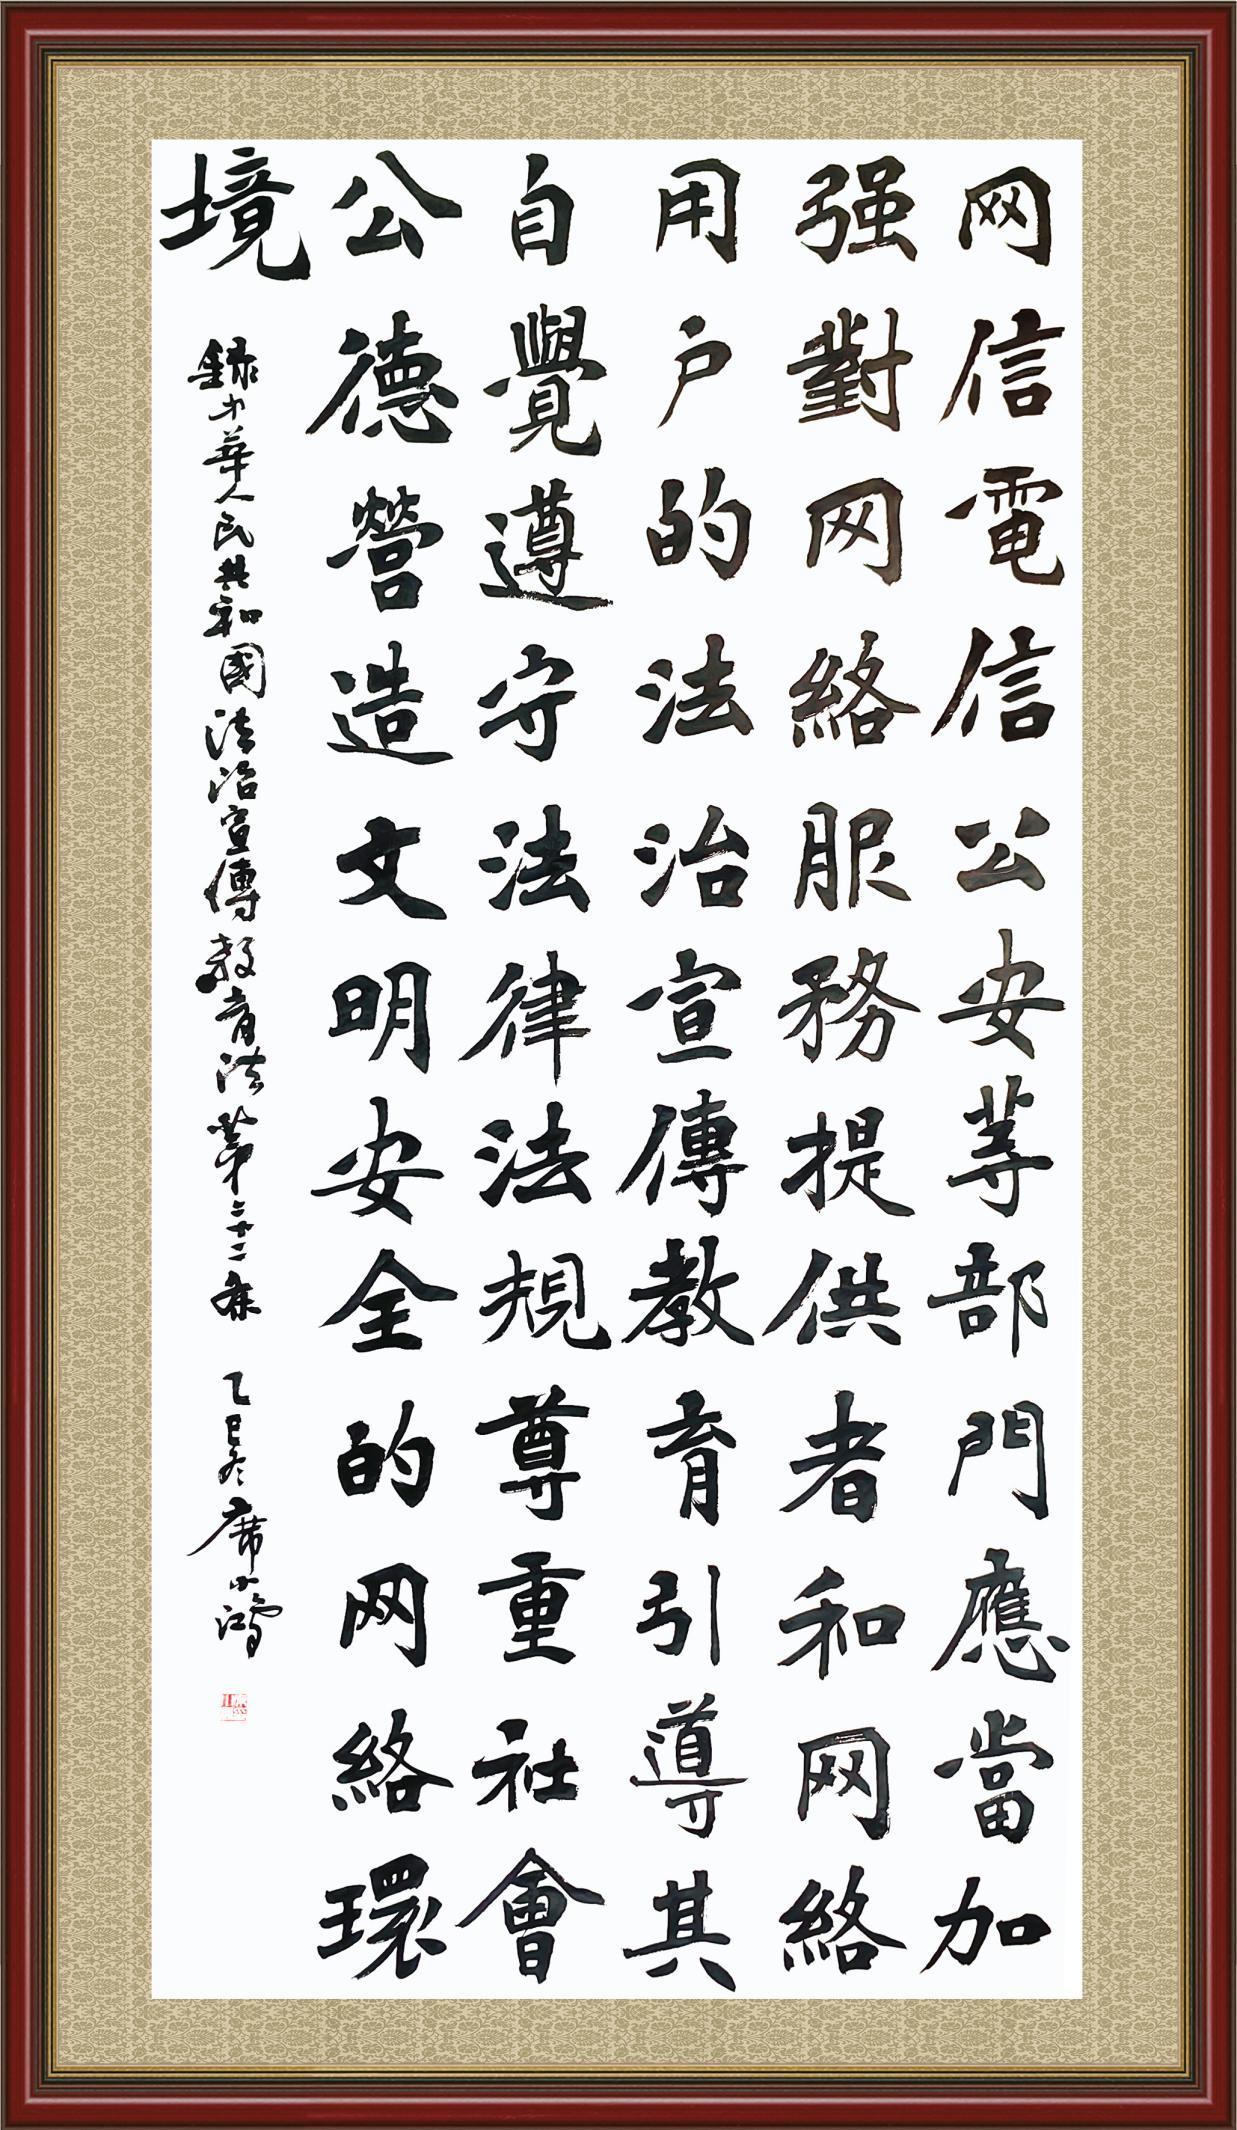 网信電信公安等部門應當加
强對网絡服務提供者和网絡
用户的法治宣傳教育引導其
自覺遵守法律法規尊重社會
公德營造文明安全的网絡環
境
錄中華人民共和國法治宣傳教育法第二十二条
乙巳冬 席小鴻